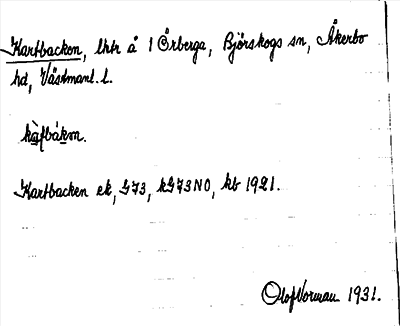 Kartbacken, lhtr å 1 Örberga, Björskogs sn, Åkerbo
hd, Västmanl. l.
Kartbacken ek, G73, kG73NO, kb 1921.
Olof Vorman 1931.